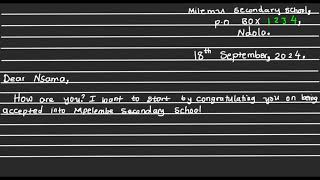 Milemus Secondary School,
P.O BOX 1234,
Ndolo.
18th September, 2024.
Dear Nsama,
How are you? I want to start by congratulating you on being
accepted into Mpelembe Secondary School